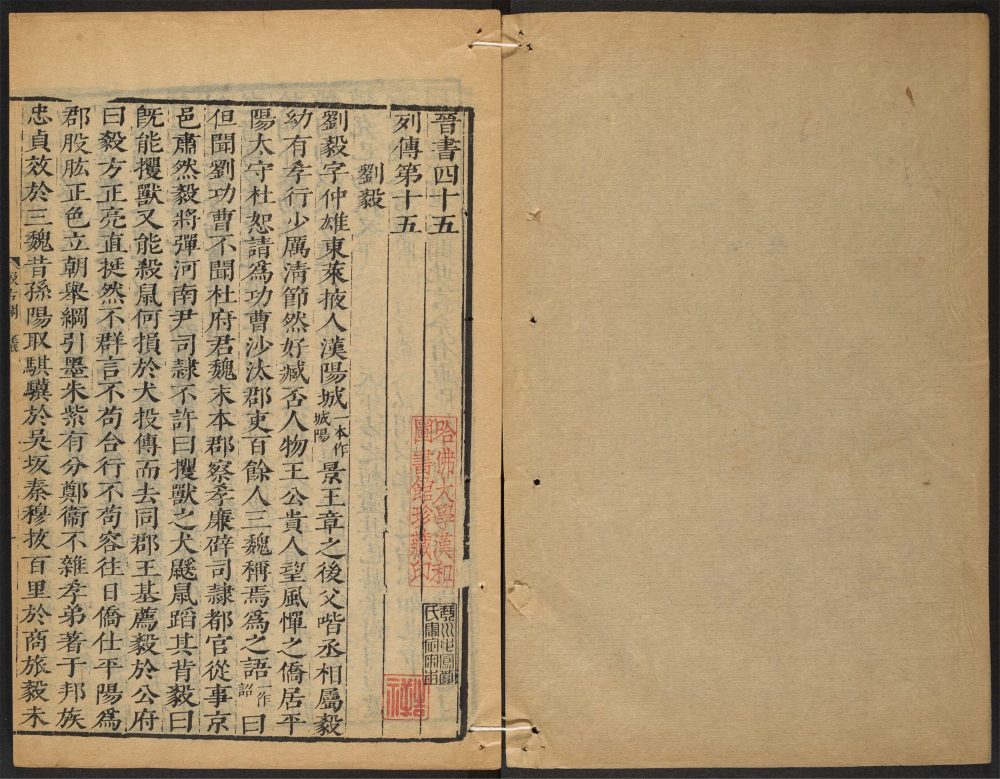 晉書四十五
列傳第十五
劉毅
劉毅字仲雄東萊掖人漢陽城一本作城陽景王章之後父喈丞相屬毅
幼有孝行少厲淸節然好臧否人物王公貴人望風憚之僑居平
陽太守杜恕請爲功曹沙汰郡吏百餘人三魏稱焉爲之語一作詔曰
但聞劉功曹不聞杜府君魏末本郡察孝廉辟司隸都官從事京
邑肅然毅將彈河南尹司隸不許曰攫獸之犬鼷鼠蹈其背毅曰
旣能攫獸又能殺鼠何損於犬投傳而去同郡王基薦毅於公府
曰毅方正亮直挺然不群言不苟合行不苟容往日僑仕平陽爲
郡股肱正色立朝舉綱引墨朱紫有分鄭衞不雜孝弟著于邦族
忠貞效於三魏昔孫陽取騏驥於吳坂秦穆拔百里於商旅毅未
哈佛大學漢和
圖書館珍藏印